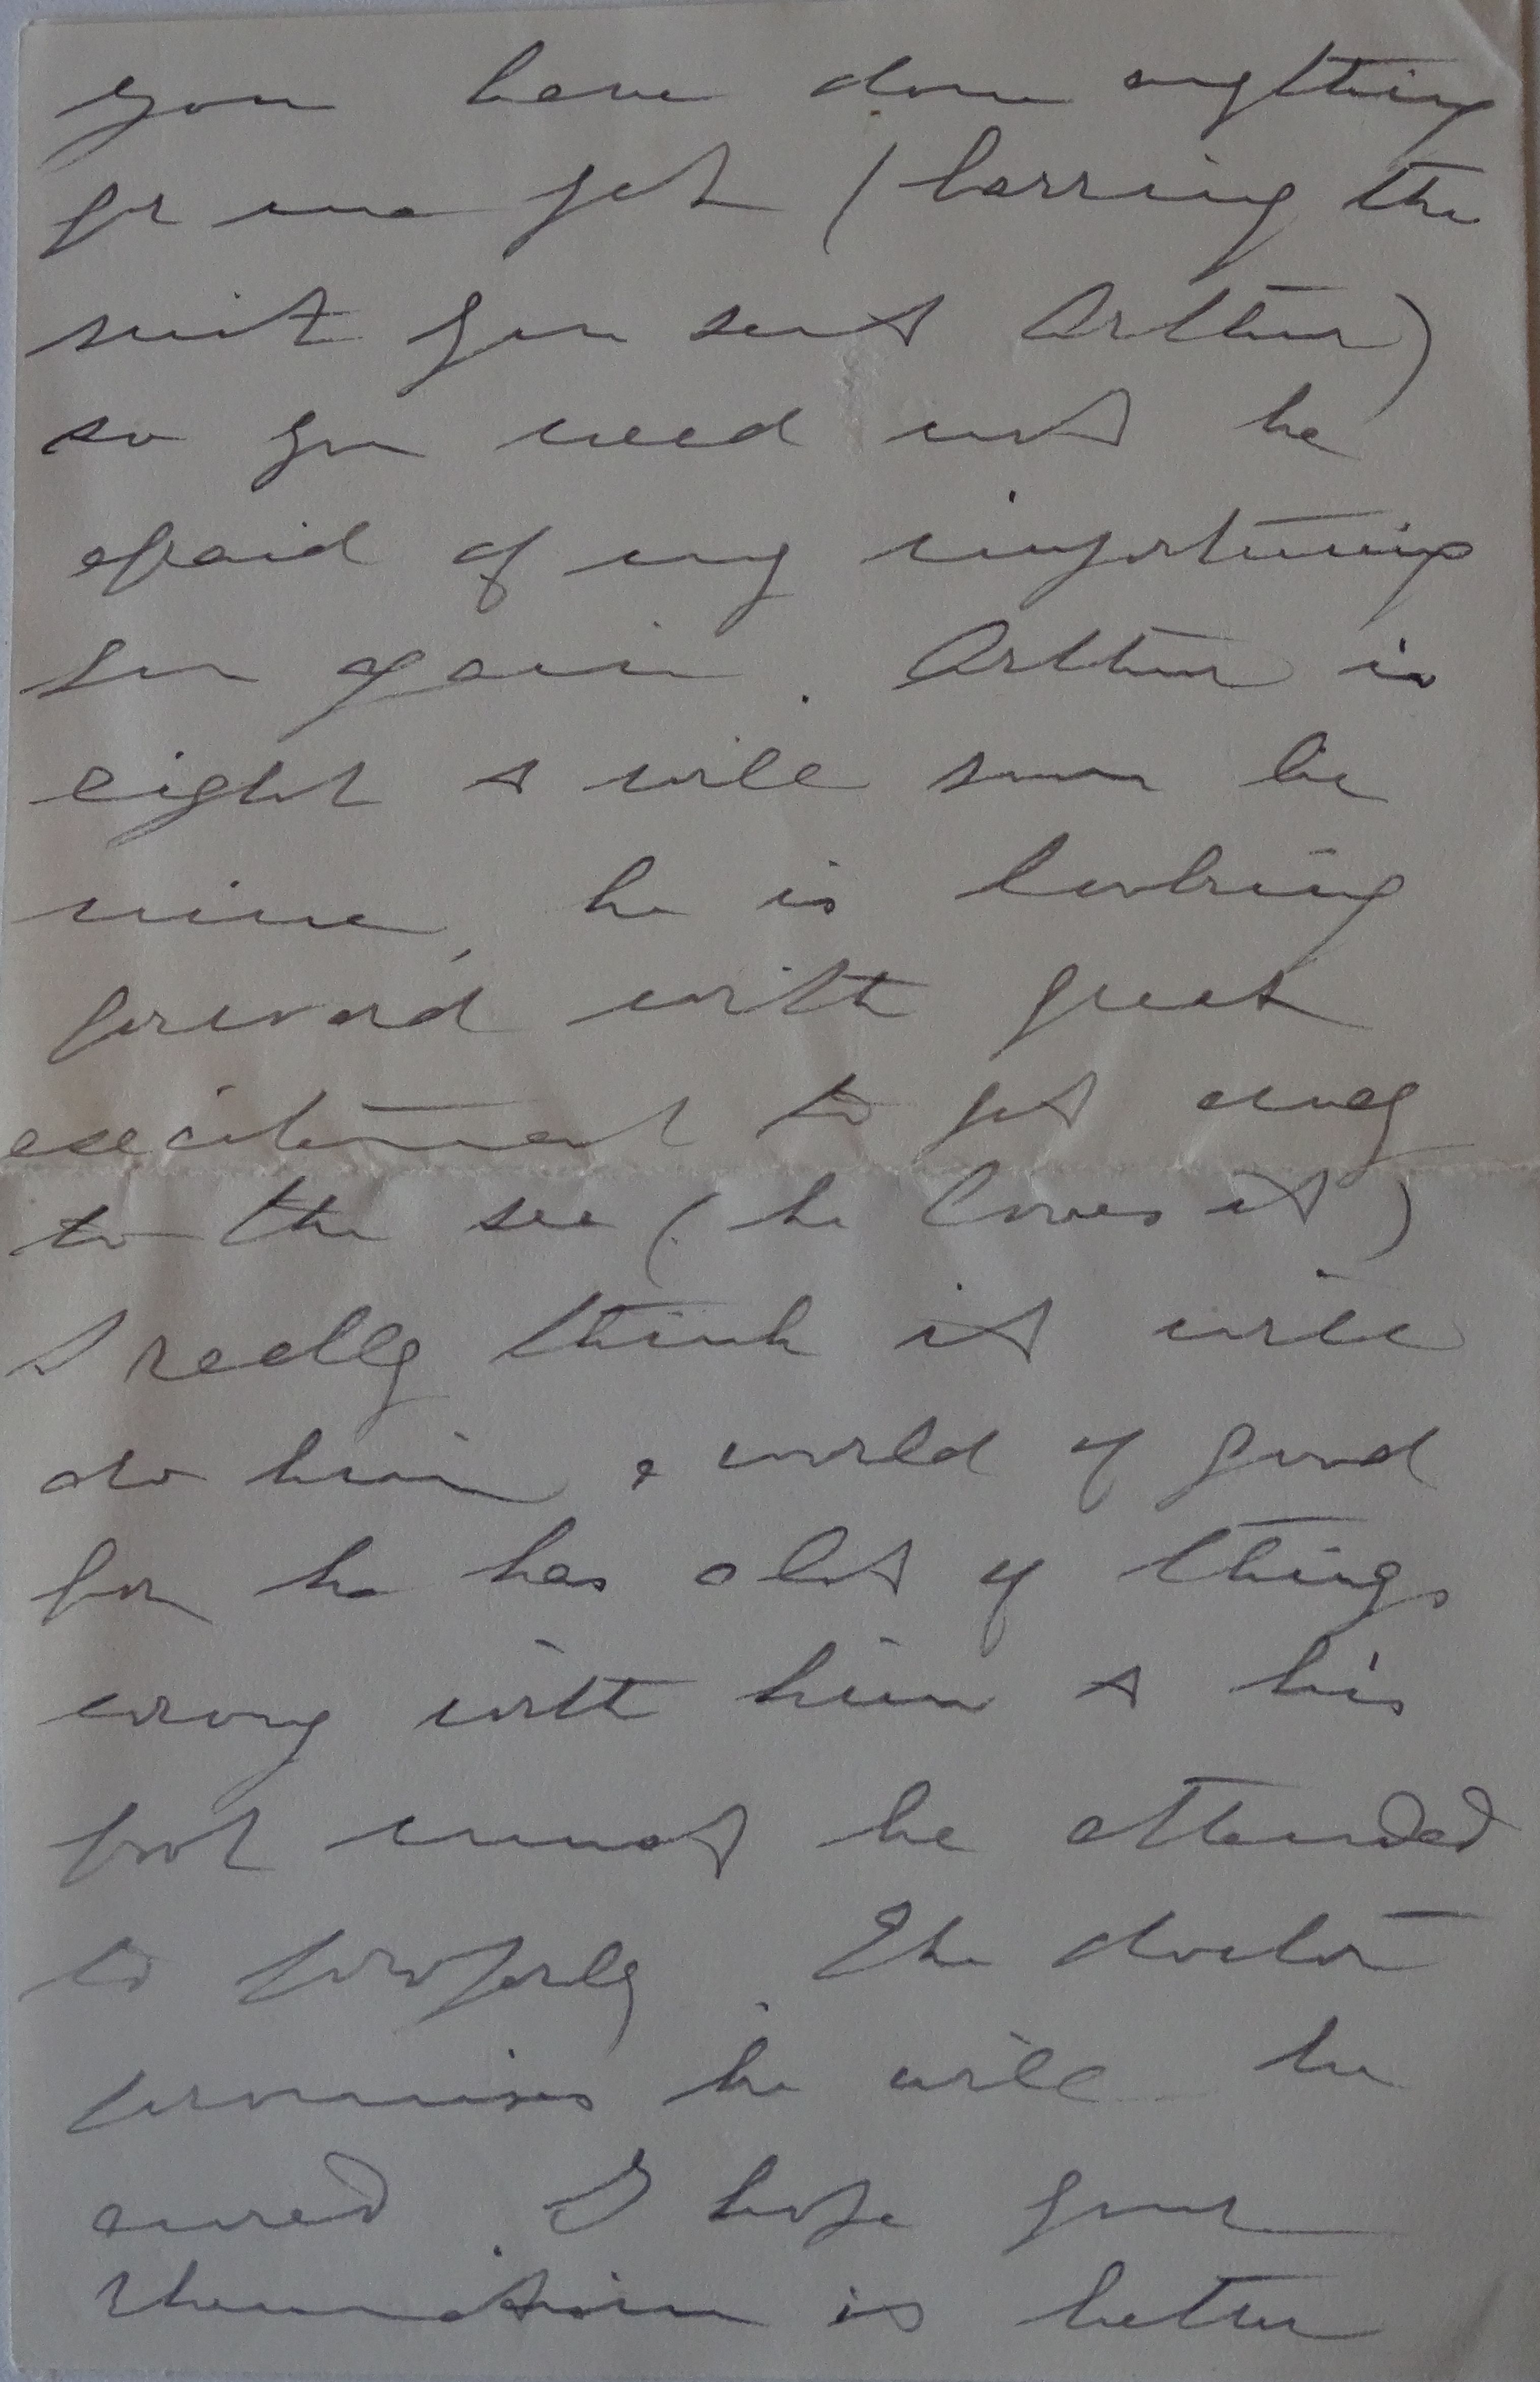 you have done anything
for me yet (barring the
suit you sent Arthur)
so you need not be
afraid of my importuning
you again. Arthur is
eight & will soon be
nine, he is looking
forward with great
excitement to get away
to the sea (he loves it)
I really think it will
do him a world of good
for he has a lot of things
wrong with him & his
foot must be attended
to properly. The doctor
promises he will be
cured. I hope your
rheumatism is better